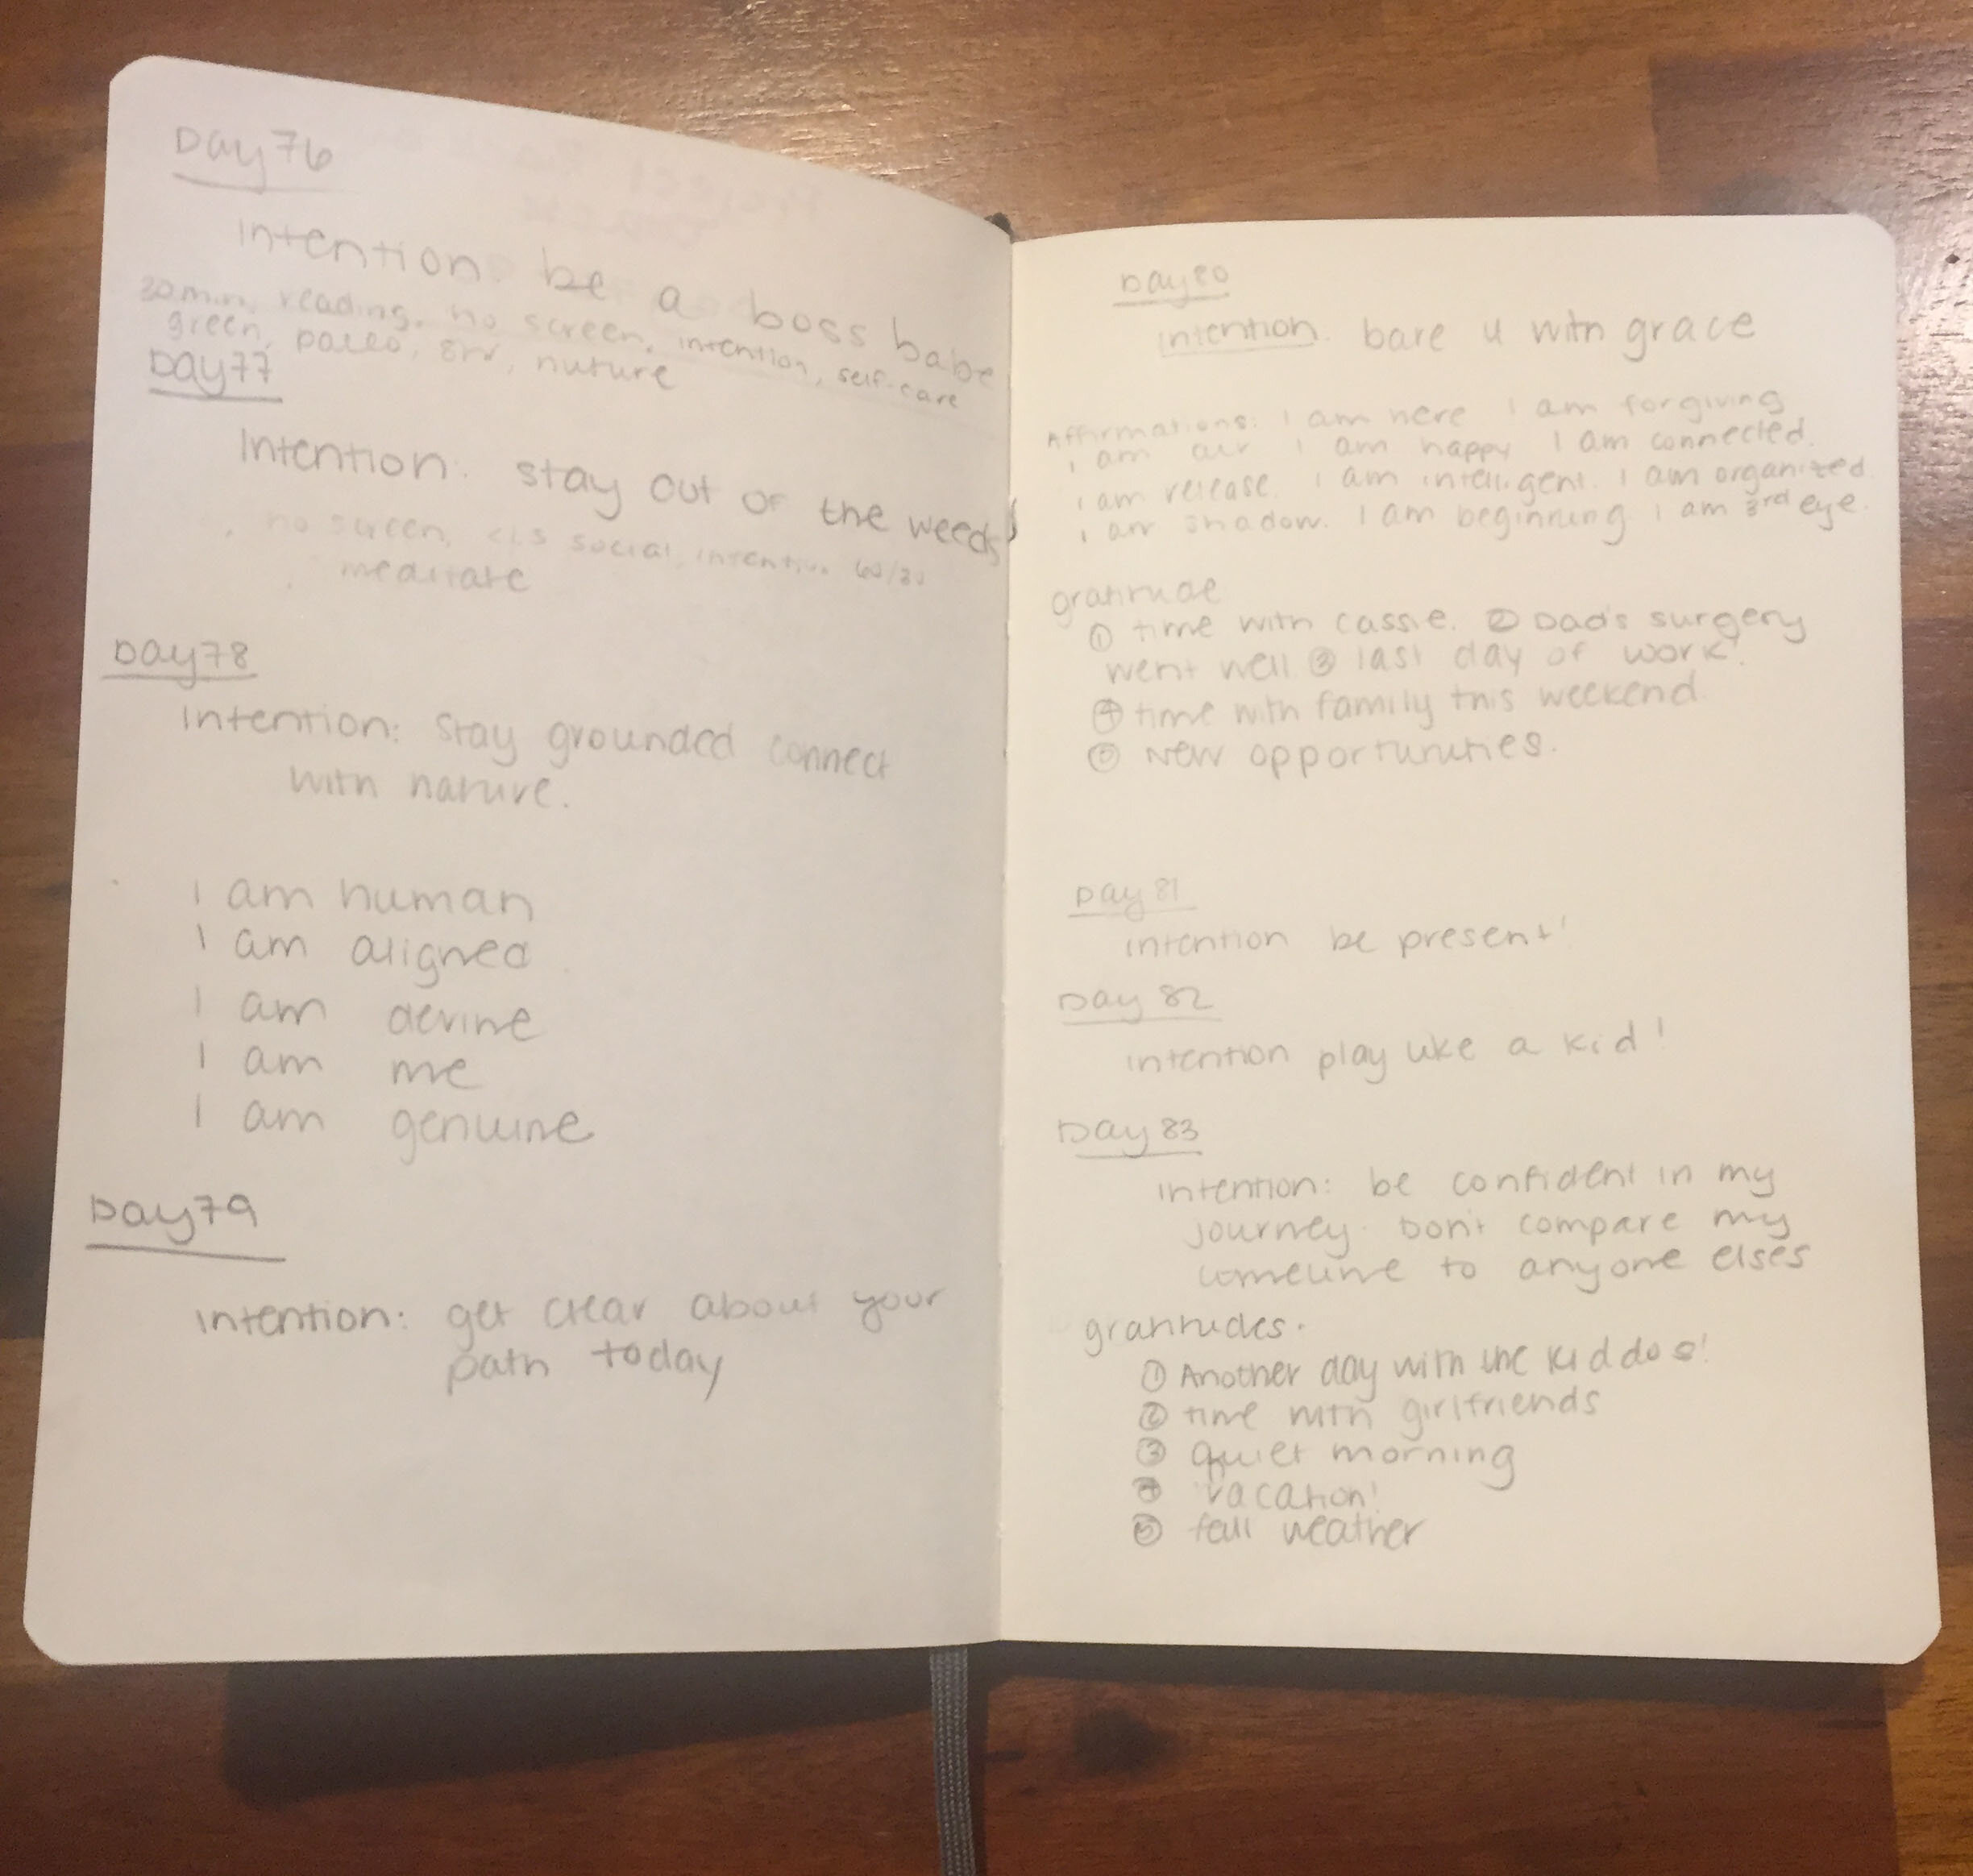 Day 76
Intention: be a boss babe
30 min, reading, no screen, intention, self-care
green, paleo, 8hr, nuture
Day 77
Intention: stay out of the weeds
no screen, <1.5 social, intention
meditate
Day 78
Intention: stay grounded connect
with nature.
I am human
I am aligned
I am devine
I am me
I am genuine
Day 79
Intention: get clear about your
path today
Day 80
Intention: bare u with grace
Affirmations: I am here I am forgiving
I am air I am happy I am connected.
I am release. I am intelligent. I am organized.
I am shadow. I am beginning I am 3rd eye.
gratitude
① time with cassie. ② Dad's surgery
went well ③ last day of work!
④ time with family this weekend.
⑤ New opportunities.
Day 81
intention be present!
Day 82
intention play like a kid!
Day 83
intention: be confident in my
journey. Don't compare my
to anyone elses
gratitudes.
① Another day with the kiddos!
② time with girlfriends
③ quiet morning
④ vacation!
⑤ fall weather